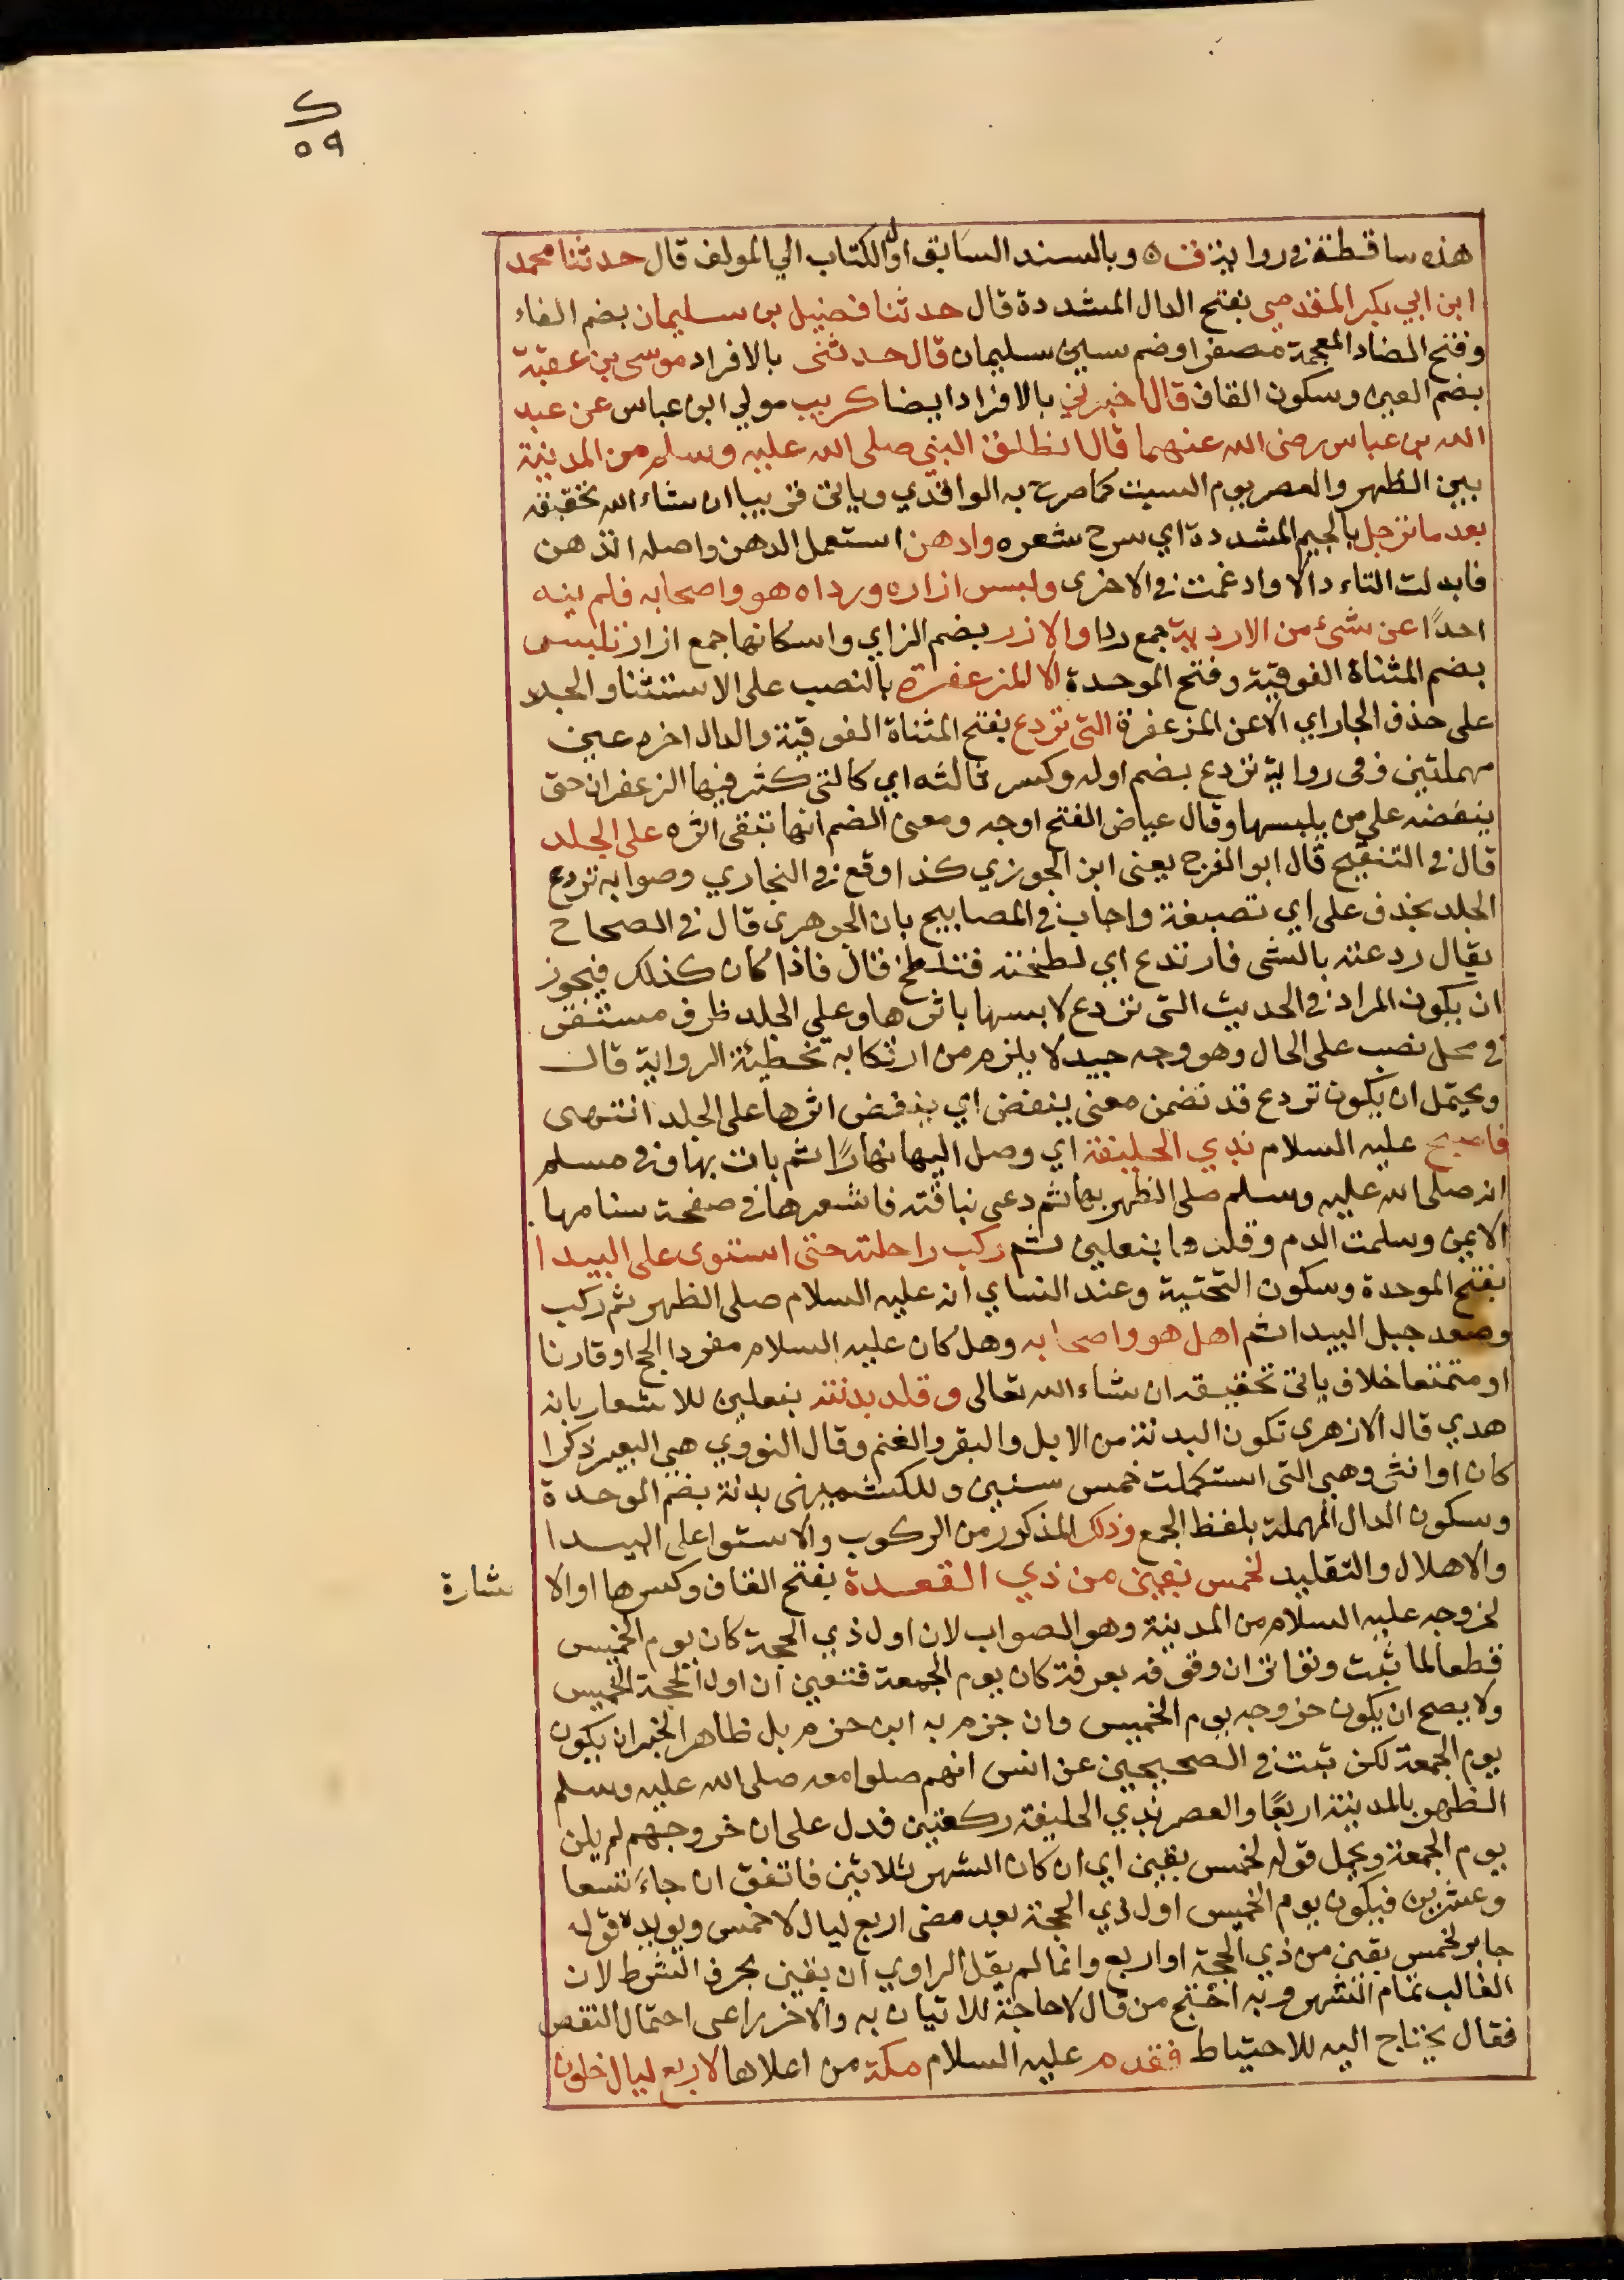 ک
٥٩
هذه ساقطة في رواية ف ٥ وبالسند السابق اول الكتاب الي المولف قال حدثنا محمد
ابن ابي بكر المقدمي بفتح الدال المشددة قال حدثنا فضيل بن سليمان بضم الفاء
وفتح الضاد المعجمة مصغرا وضم سين سليمان قال حدثني بالافراد موسى بن عقبة
بضم العين وسكون القاف قال اخبرني بالافراد ايضا كريب مولي ابن عباس عن عبد
الله بن عباس رضى الله عنهما قال انطلق النبي صلى الله عليه وسلم من المدينة
بين الظهر والعصر يوم السبت كما صرح به الواقدي وياتي قريبا ان شاء الله تحقيقه
بعد ما ترجل بالجيم المشددة اي سرح شعره وادهن استعمل الدهن واصله اتذهن
فابدلت التاء دالا وادغمت في الاخرى ولبس ازاره ورداه هو واصحابه فلم ينه
احدًا عن شئ من الاردية جمع ردا والازر بضم الزاي واسكانها جمع ازار تلبس
بضم المثناة الفوقية وفتح الموحدة الا المزعفرة بالنصب على الاستثنا والجلد
على حذف الجار اي الا عن المزعفرة التى تردع بفتح المثناة الفوقية والدال اخره عين
مهملتين وفى رواية تردع بضم اوله وكسر ثالثه اي كالتى كثر فيها الزعفران حتى
ينفضه على من يلبسها وقال عياض الفتح اوجه ومعنى الضم انها تبقى اثره على الجلد
قال في التنقيح قال ابو الفرج يعنى ابن الجوزي كذا وقع في البخاري وصوابه تردع
الجلد بحذف على اي تصبغه واجاب في المصابيح بان الجوهرى قال في الصحاح
يقال ردعته بالشى فارتدع اي لطخته فتلطخ قال فاذا كان كذلك فيجوز
ان يكون المراد في الحديث التى تردع لابسها باثرها وعلي الجلد ظرف مستقر
في محل نصب على الحال وهو وجه جيد لا يلزم من ارتكابه تخطيئة الرواية قال
ويحتمل ان يكون تردع قد تضمن معنى ينفض اي ينفض اثرها على الجلد انتهى
فاصبح عليه السلام بذي الحليفة اي وصل اليها نهارًا ثم بات بها وفي مسلم
انه صلى الله عليه وسلم صلى الظهر بها ثم دعى بناقته فاشعرها في صفحة سنامها
الايمن وسلمت الدم وقلدها بنعلين ثم ركب راحلته حتى استوى على البيدا
بفتح الموحدة وسكون التحتية وعند النساي انه عليه السلام صلى الظهر ثم ركب
وصعد جبل البيدا ثم اهل هو واصحابه وهل كان عليه السلام مفردا الحج او قارنا
او متمتعا خلاف ياتي تحقيقه ان شاء الله تعالى وقلد بدنته بنعلين للاشعار بانه
هدي قال الازهرى تكون البدنة من الابل والبقر والغنم وقال النووي هي البعير ذكرا
كان او انثى وهي التى استكملت خمس سنين وللكشميهنى بدنه بضم الموحدة
وسكون الدال المهملة بلفظ الجمع وذلك المذكور من الركوب والاستوا على البيدا
والاهلال والتقليد لخمس بقين من ذي القعدة بفتح القاف وكسرها او الا شارة
لخروجه عليه السلام من المدينة وهو الصواب لان اول ذي الحجة كان يوم الخميس
قطعا لما ثبت وتواتر ان وقوفه بعرفة كان يوم الجمعة فتعين ان اول الحجة الخميس
ولا يصح ان يكون خروجه يوم الخميس وان جزم به ابن حزم بل ظاهر الخبر ان يكون
يوم الجمعة لكن ثبت في الصحيحين عن انس انهم صلوا معه صلى الله عليه وسلم
الظهر بالمدينة اربعًا والعصر بذي الحليفة ركعتين فدل على ان خروجهم لم يكن
يوم الجمعة ويحمل قوله لخمس بقين اي ان كان الشهر ثلاثين فاتفق ان جاء تسعا
وعشرين فيكون يوم الخميس اول ذي الحجة بعد مضى اربع ليال لا خمس ويويده قوله
جابر لخمس بقين من ذي الحجة او اربع وانما لم يقل الراوي ان بقين بحرف الشرط لان
الغالب تمام الشهر وبه احتج من قال لا حاجة للاتيان به والاخر راعى احتمال النقص
فقال يحتاج اليه للاحتياط فقدم عليه السلام مكة من اعلاها لاربع ليال خلون